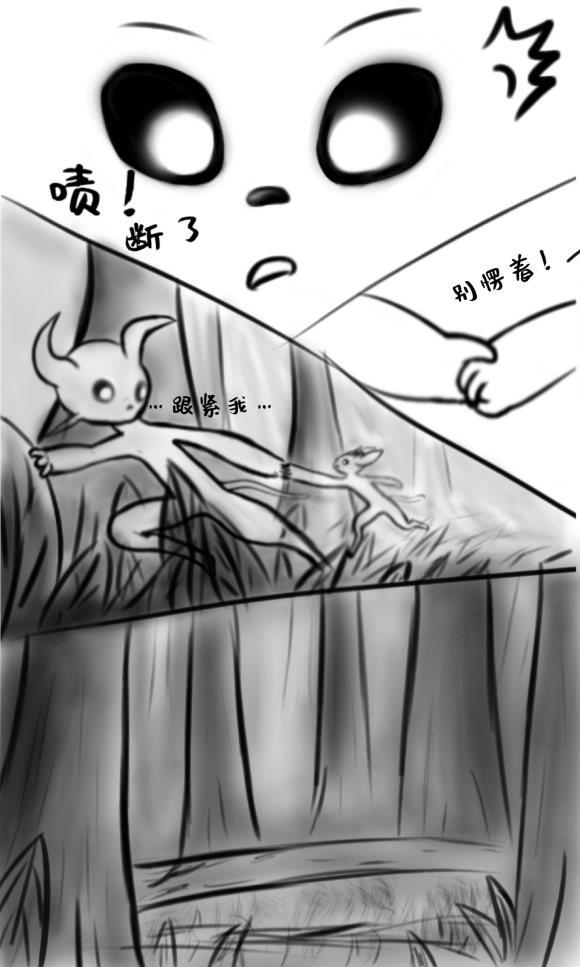 啧！
断了
别愣着！
…跟紧我…